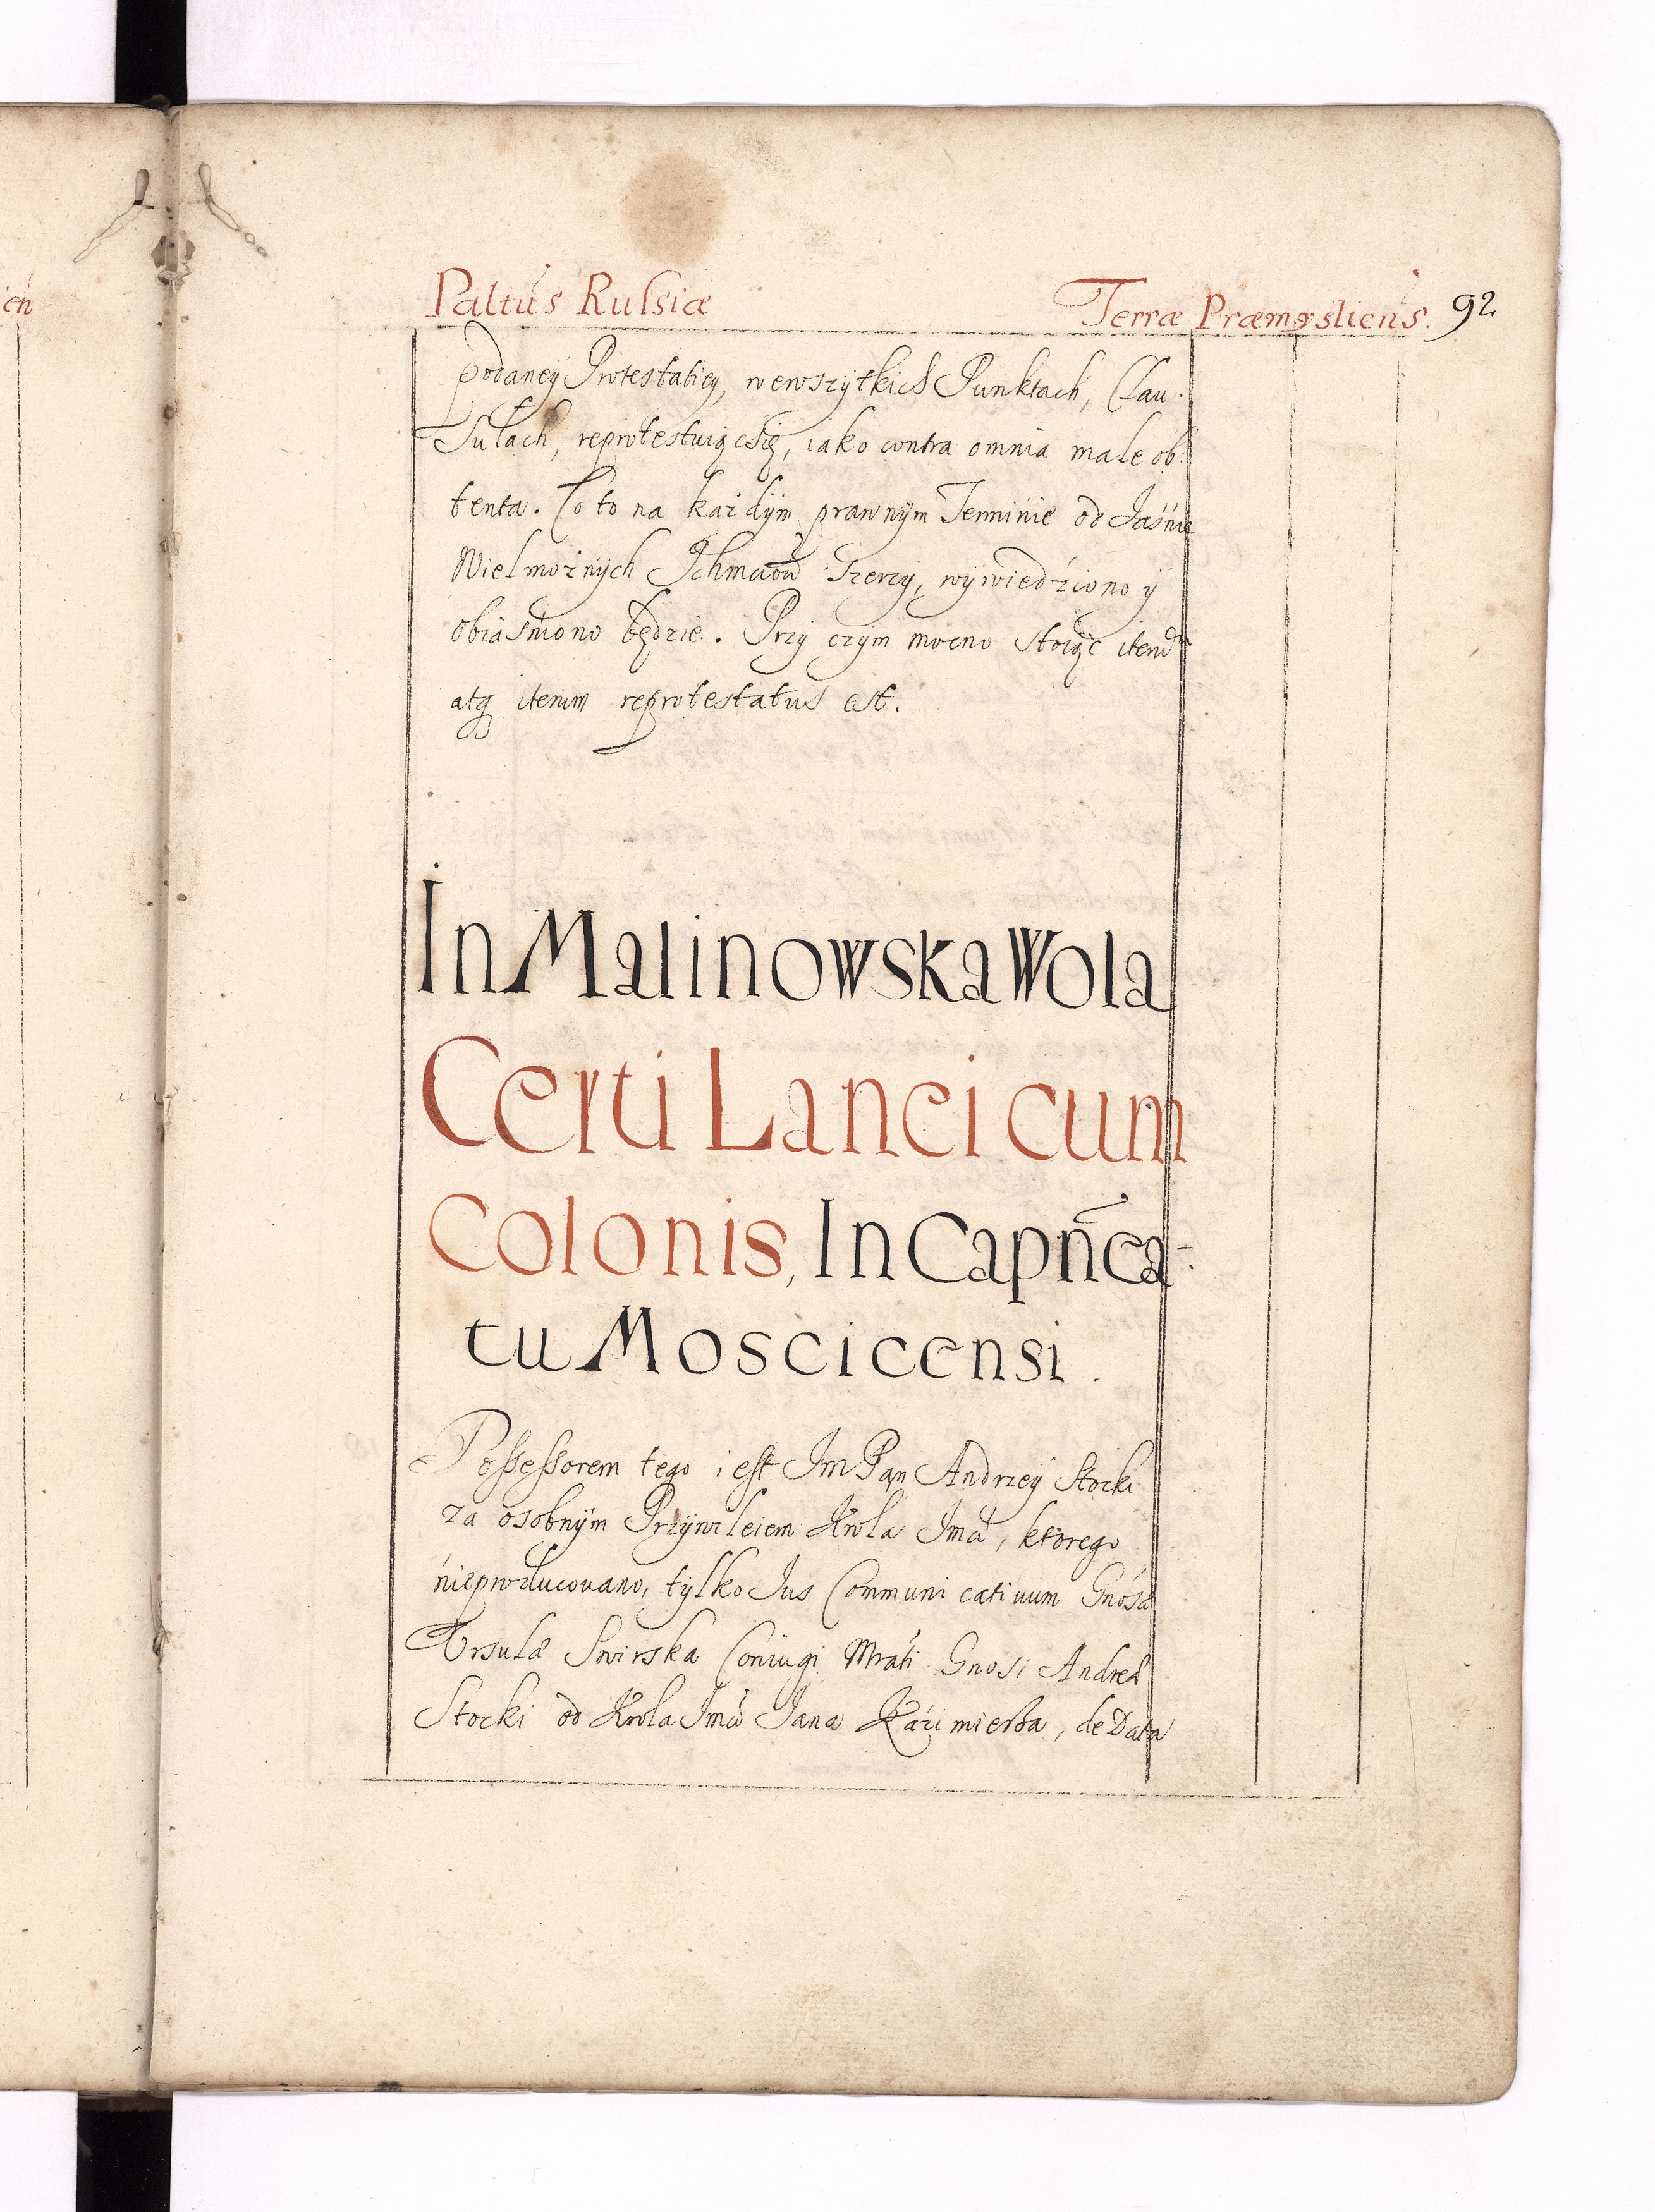 ien
Paltus Russiæ Terræ Præmysliens. 92
podaney Protestatiey, wewszytkich Punktach, Clau-
sulach, reprotestuiąc się, iako contra omnia male ob-
tenta. Co to na każdym prawnym Terminie od Jaśnie
Wielmożnych Ichmciow szerzy, wywiedziono y
obiasniono będzie. Przy czym mocno stoiąc
atq iterum reprotestatus est.
In Malinowska Wola
Certi Lanei cum
Colonis, In Capn̄ea-
tu Moscicensi.
Possessorem tego iest Im Pan Andrzey Stocki
za osobnym Przywileiem Krola Imci, ktorego
nieproducowano, tylko Ius Communicativum Gnosæ
Ursulæ Swirska Coniugi Mrati Gnosi Andreæ
Stocki od Krola Imci Jana Kazimierza, de Data